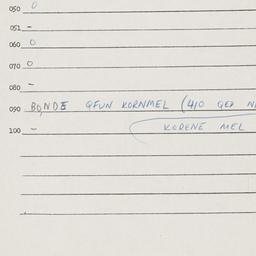 050 0
051 -
060 0
070 0
080 -
090 BONDE GFUN KORNMEL (410 GEZ
100 -
KODENE MEL